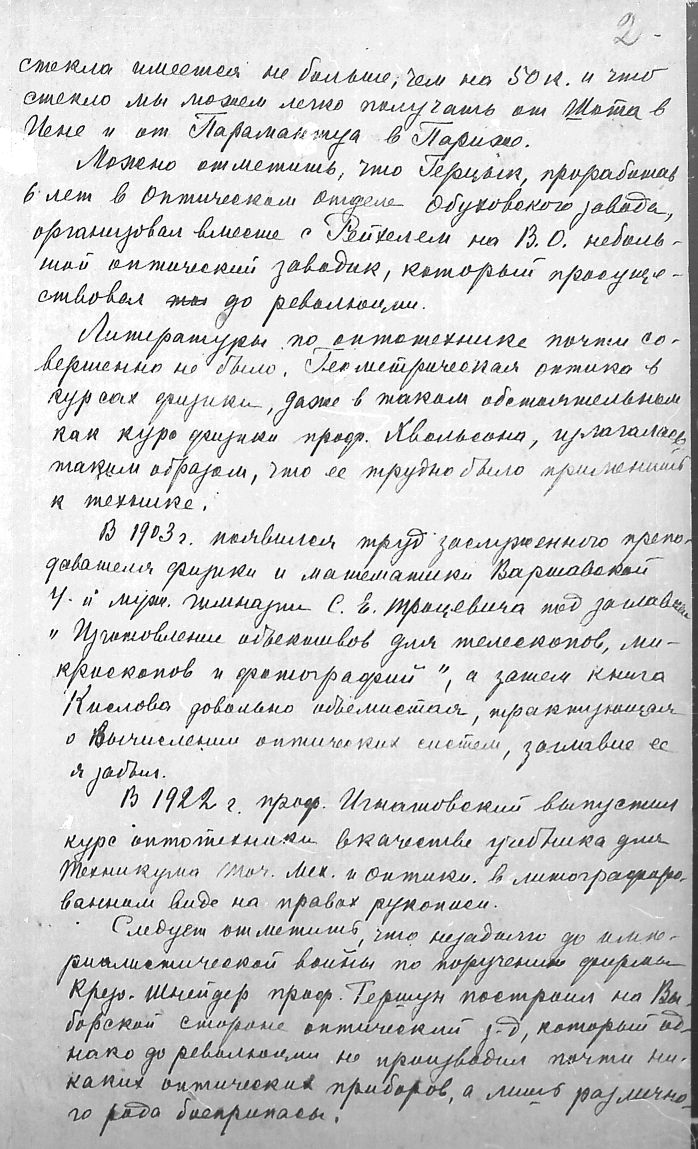 2-
стекла имеется не больше, чем на 50 к. и что
стекло мы можем легко получать от Шота в
Иене и от Парамантуа в Париже.
Можно отметить, что Герцык, проработав
6 лет в Оптическом отделе Обуховского завода,
организовал вместе с Рейхелем на В.О. неболь-
шой оптический заводик, который просуще-
ствовал до революции.
Литературы по оптотехнике почти со-
вершенно не было. Геометрическая оптика в
курсах физики, даже в таком обстоятельном
как курс физики проф. Хвольсона, излагалась
таким образом, что ее трудно было применить
к технике.
В 1903 г. появился труд заслуженного препо-
давателя физики и математики Варшавской
4-й муж. гимназии С. Е. Троцевича под заглавием
„Изготовление объективов для телескопов, ми-
кроскопов и фотографий", а затем книга
Кислова довольно объемистая, трактующая
о вычислении оптических систем, заглавие ее
я забыл.
В 1922 г. проф. Игнатовский выпустил
курс оптотехники в качестве учебника для
Техникума Точ. Мех. и Оптики в литографиро-
ванном виде на правах рукописи.
Следует отметить, что незадолго до импе-
риалистической войны по поручению фирмы
Крезо-Шнейдер проф. Гершун построил на Вы-
боргской стороне оптический з-д, который од-
нако до революции не производил почти ни-
каких оптических приборов, а лишь различно-
го рода боеприпасы.